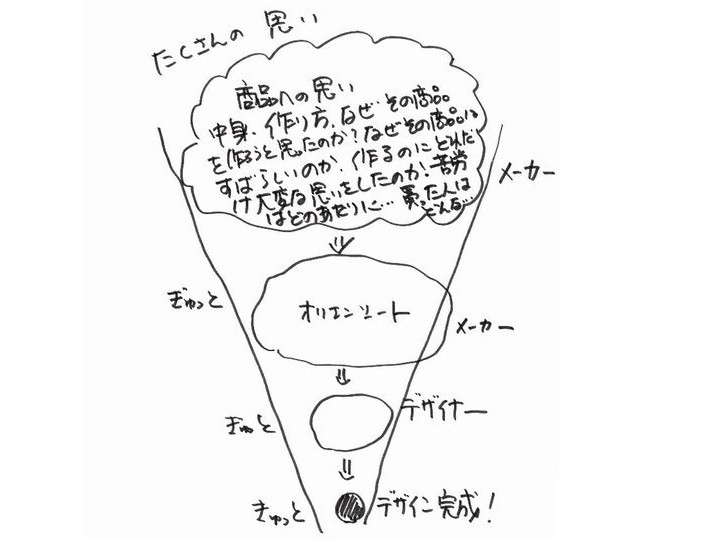 たくさんの 思い
商品への思い
中身、作り方、なぜ その商品
を作ろうと思ったのか?なぜその商品は
すばらしいのか、作るのに どれだ
け大変な思いをしたのか、苦労
はどのあたりに… 買った人は
どんな…
メーカー
ぎゅっと
オリエンシート
メーカー
デザイナー
ぎゅっと
ぎゅっと
デザイン完成!